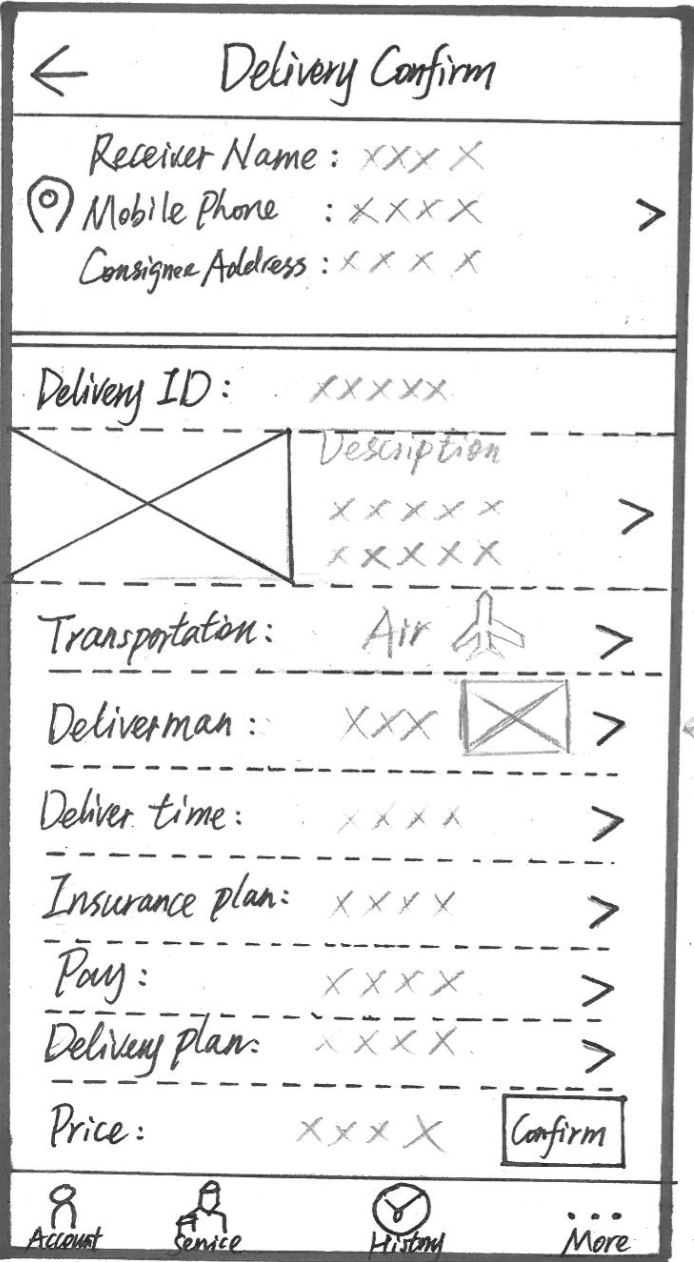 Delivery Confirm
Receiver Name : XXXX
Mobile Phone : XXXX
Consignee Address : XXXX
Delivery ID : XXXXX
Description
XXXXX
XXXXX
Transportation: Air
Deliverman : XXX
Deliver time : XXXX
Insurance plan: XXXX
Pay : XXXX
Delivery plan: XXXX
Price : XXXX Confirm
Account Service History More